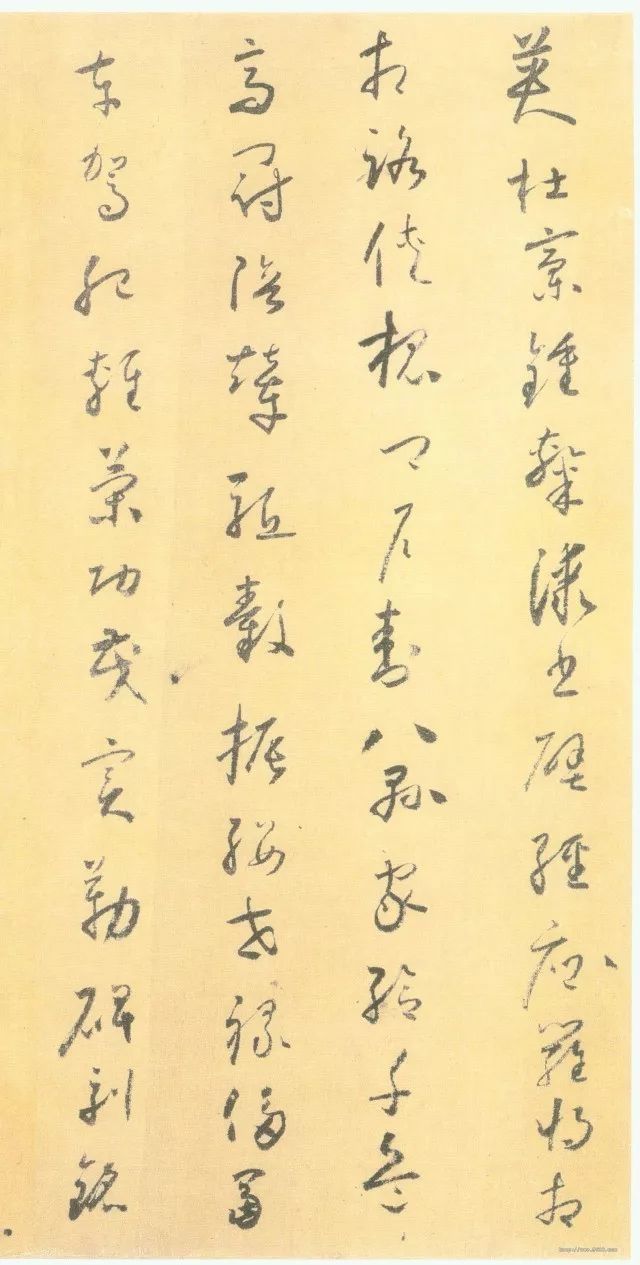 英杜稾鍾隸漆書壁經府羅將相
相路俠槐卿戶封八縣家給千兵
高冠陪輦驅轂振纓世祿侈富
車駕肥輕策功茂實勒碑刻銘